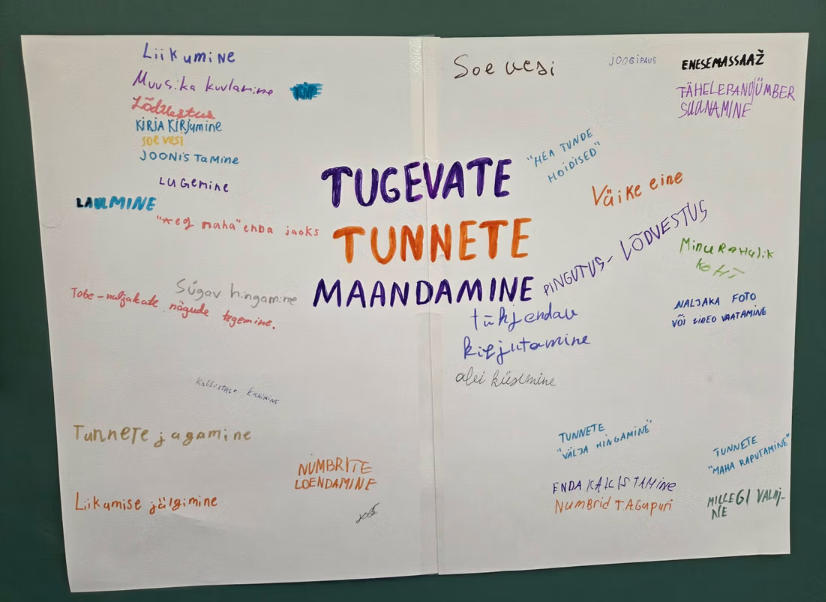 Liikumine
Muusika kuulamine
Lõdvestus
KIRJA KIRJUMINE
SOE VESI
JOONISTAMINE
LUGEMINE
LAULMINE
"aeg maha" enda jaoks
Sügav hingamine
Tobe-naljakate nägude tegemine.
Tunnete jagamine
Liikumise jälgimine
NUMBRITE
LOENDAMINE
TUGEVATE
TUNNETE
MAANDAMINE
Soe vesi
JOOGIPAUS
ENESEMASSAAŽ
TÄHELEPANU ÜMBER
SUUNAMINE
"HEA TUNDE
HOIDISED"
Väike eine
PINGUTUS-LÕDVESTUS
MINU RAHULIK
KOHT
NALJAKA FOTO
VÕI VIDEO VAATAMINE
tühjendav
kirjutamine
abi küsimine
TUNNETE
"VÄLJA HINGAMINE"
TUNNETE
"MAHA RAPUTAMINE"
ENDA KALLISTAMINE
NUMBRID TAGAPURI
MILLEGI
NE